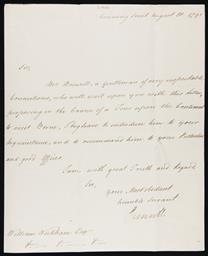 Downing Street August 10. 1795
Sir,
Mr. a gentleman of very respectable
Connections, who will wait upon you with this letter,
proposing in the course of a Tour upon the Continent
to visit Berne, I beg leave to introduce him to your
Acquaintance, and to recommend him to your Protection
and good Offices.
I am with great Truth and Regard
Sir,
your Most obedient
humble Servant
Grenville
William Wickham Esqr